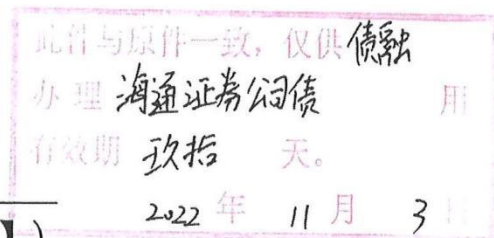 此件与原件一致，仅供债融
办理海通证券公司债用
有效期玖拾天。
2022年11月3日